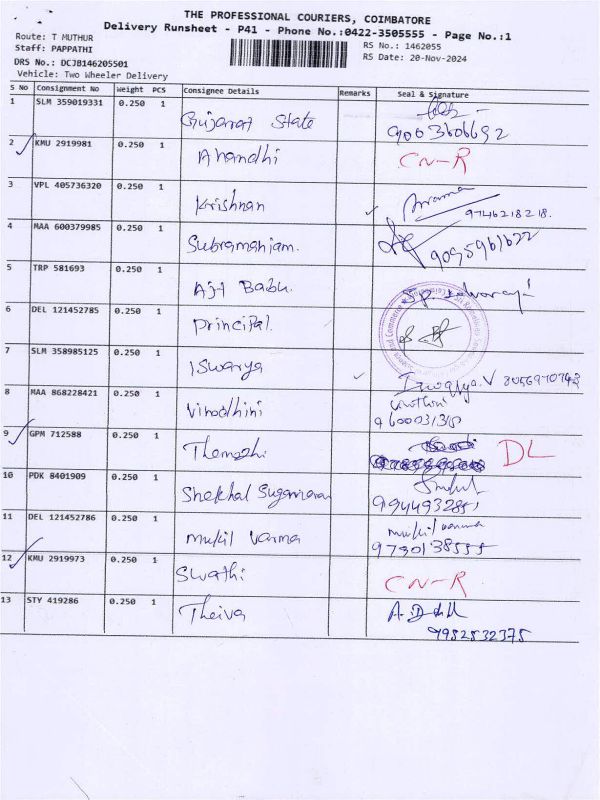 THE PROFESSIONAL COURIERS, COIMBATORE
Delivery Runsheet - P41 - Phone No.:0422-3505555 - Page No.:1
Route: T MUTHUR
RS No.: 1462055
Staff: PAPPATHI
RS Date: 20-Nov-2024
DRS No.: DCJB146205501
Vehicle: Two Wheeler Delivery
S No Consignment No Weight PCS Consignee Details Remarks Seal & Signature
1 SLM 359019331 0.250 1 Gujarat State 9003606692
2 KMU 2919981 0.250 1 Anandhi CN-R
3 VPL 405736320 0.250 1 Krishnan 9746218218.
4 MAA 600379985 0.250 1 Subramaniam.
5 TRP 581693 0.250 1 Ajt Babu.
6 DEL 121452785 0.250 1 Principal.
7 SLM 358985125 0.250 1 Iswarya
8 MAA 868228421 0.250 1 Vinodhini
9 GPM 712588 0.250 1 DL
10 PDK 8401909 0.250 1
11 DEL 121452786 0.250 1 Mukil Varma mukil varma
9790138555
12 KMU 2919973 0.250 1 Swathi CN-R
13 STY 419286 0.250 1 Theiva
9952532375